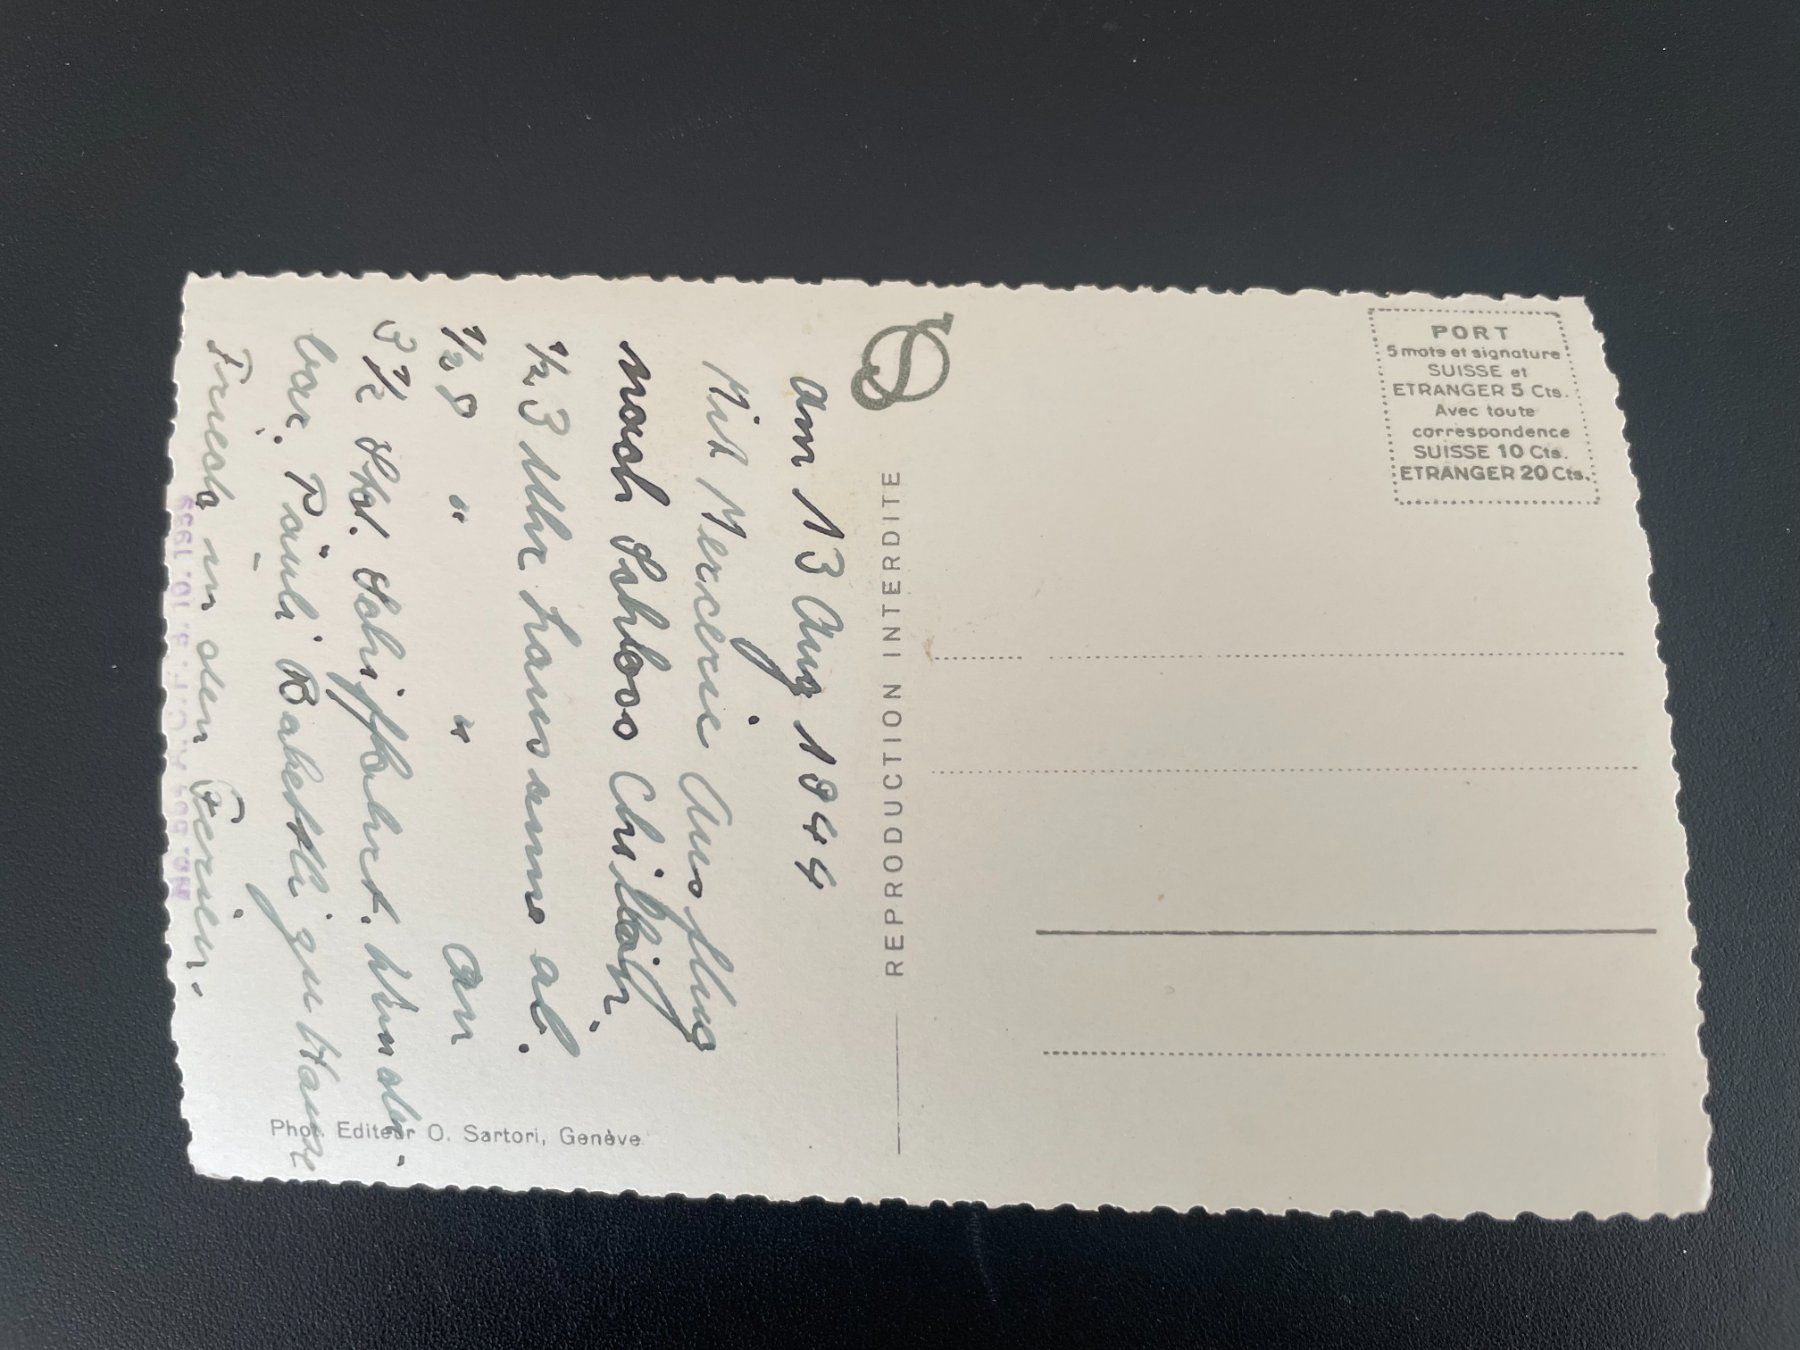 am 13 Aug 1944
Mit Mercerie Ausflug
nach Schloss Chillon,
½ 3 Uhr Lausanne ab.
½ 8 " " an
3 ½ Std. Schiffahrt. Wunder-
bar. Päuli Babettli zu Hause
Frieda in den Ferien.
REPRODUCTION INTERDITE
Phot. Editeur O. Sartori, Genève
PORT
5 mots et signature
SUISSE et
ETRANGER 5 Cts.
Avec toute
correspondence
SUISSE 10 Cts.
ETRANGER 20 Cts.